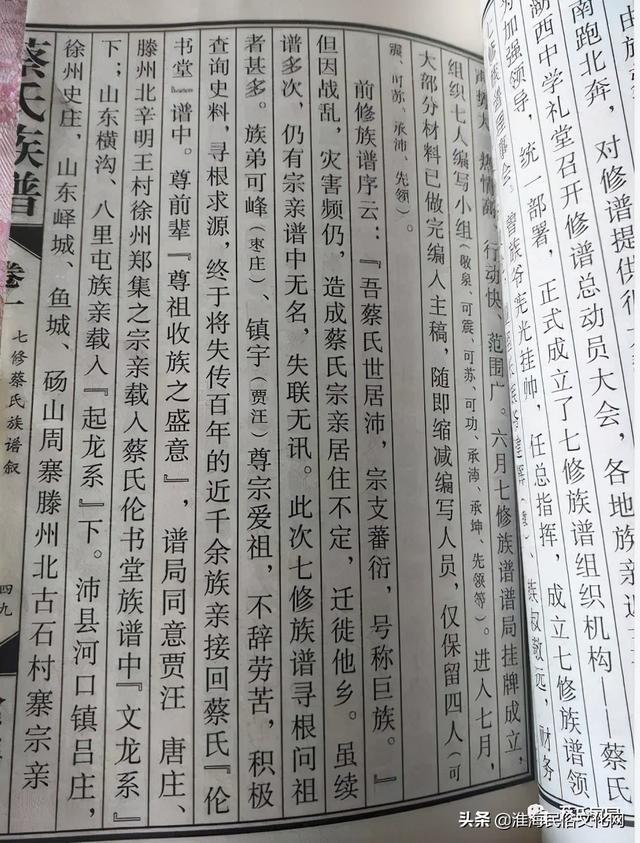 由族
南跑北奔，对修谱提供很
湖西中学礼堂召开修谱总动员大会，各地族亲
为加强领导，统一部署，正式成立了七修族谱组织机构——蔡氏
七修族谱理事会。曾族爷宪光挂帅，任总指挥，成立七修族谱领
族叔敬远，财务
声势大、热情高、行动快、范围广。六月七修族谱谱局挂牌成立，
组织七人编写小组（敬泉、可震、可苏、可功、承涛、承坤、先领等）。进入七月，
大部分材料已做完编入主稿，随即缩减编写人员，仅保留四人（可
震、可苏、承沛、先领）。
前修族谱序云：『吾蔡氏世居沛，宗支蕃衍，号称巨族。』
但因战乱，灾害频仍，造成蔡氏宗亲居住不定，迁徙他乡。虽续
谱多次，仍有宗亲谱中无名，失联无讯。此次七修族谱寻根问祖
者甚多。族弟可峰（枣庄）、镇宇（贾汪）尊宗爱祖，不辞劳苦，积极
查询史料，寻根求源，终于将失传百年的近千余族亲接回蔡氏『伦
书堂』谱中。尊前辈『尊祖收族之盛意』，谱局同意贾汪 唐庄、
滕州北辛明王村徐州郑集之宗亲载入蔡氏伦书堂族谱中『文龙系』
下；山东横沟、八里屯族亲载入『起龙系』下。沛县河口镇吕庄，
徐州史庄，山东峄城、鱼城、砀山周寨滕州北古石村寨宗亲
蔡氏族谱
卷一
七修蔡氏族谱叙
四九
头条 @淮海民俗文化网